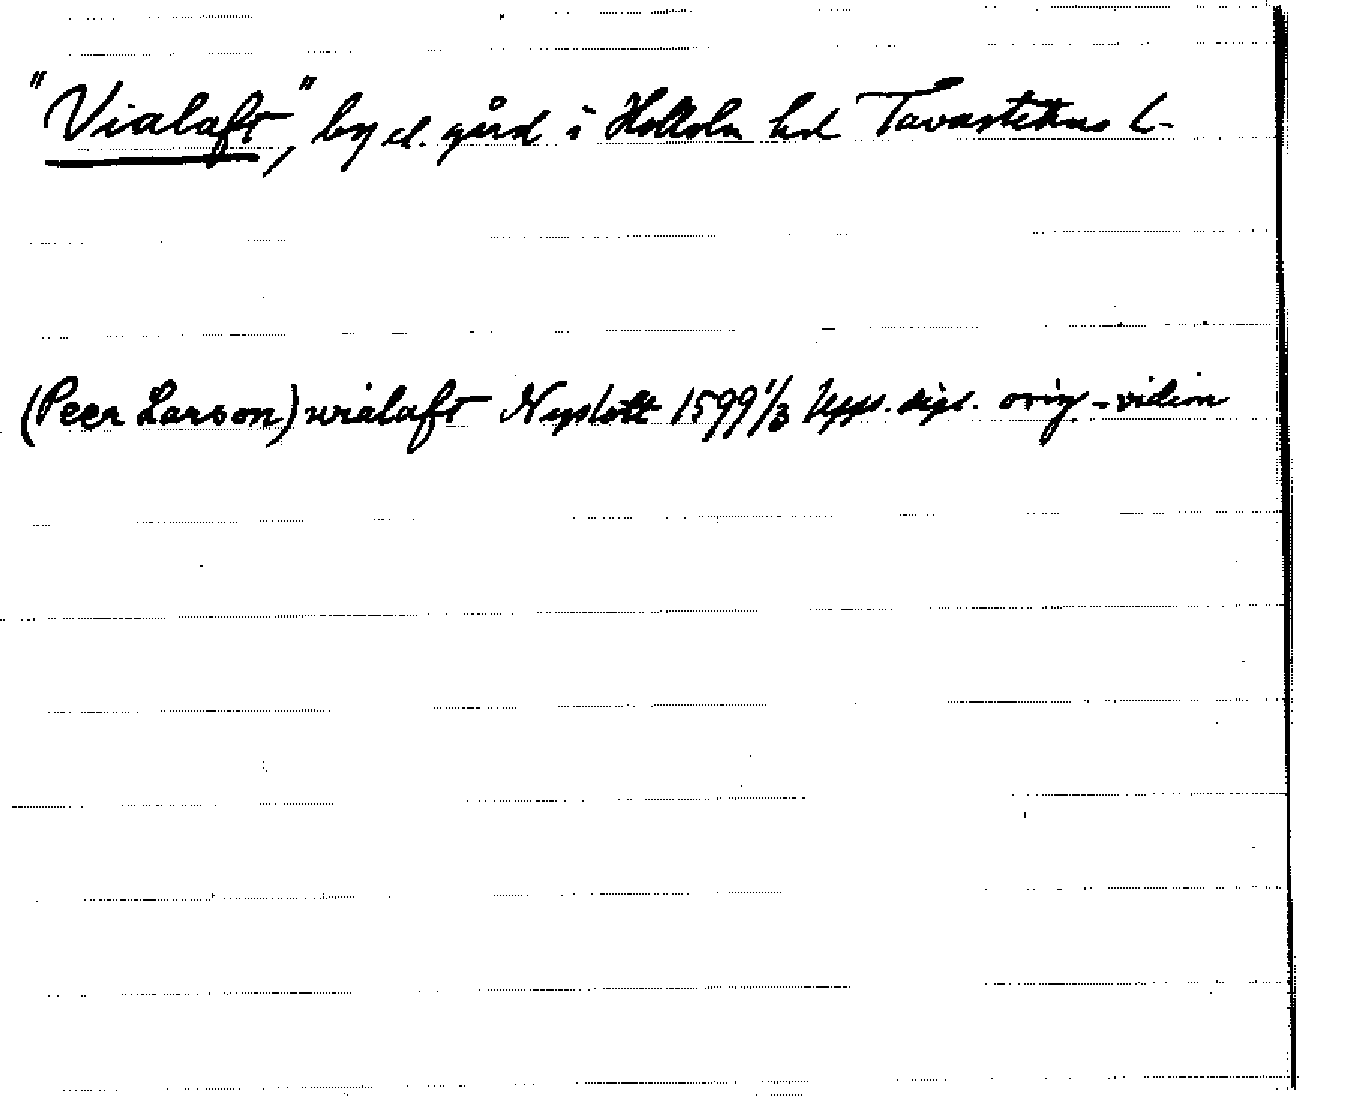 "Vialaft", by el. gård i Hollola hd Tavastehus l-
(Peer Larson) wialaft Nyslott 1599 1/3 Upps. dipl. orig-vidim